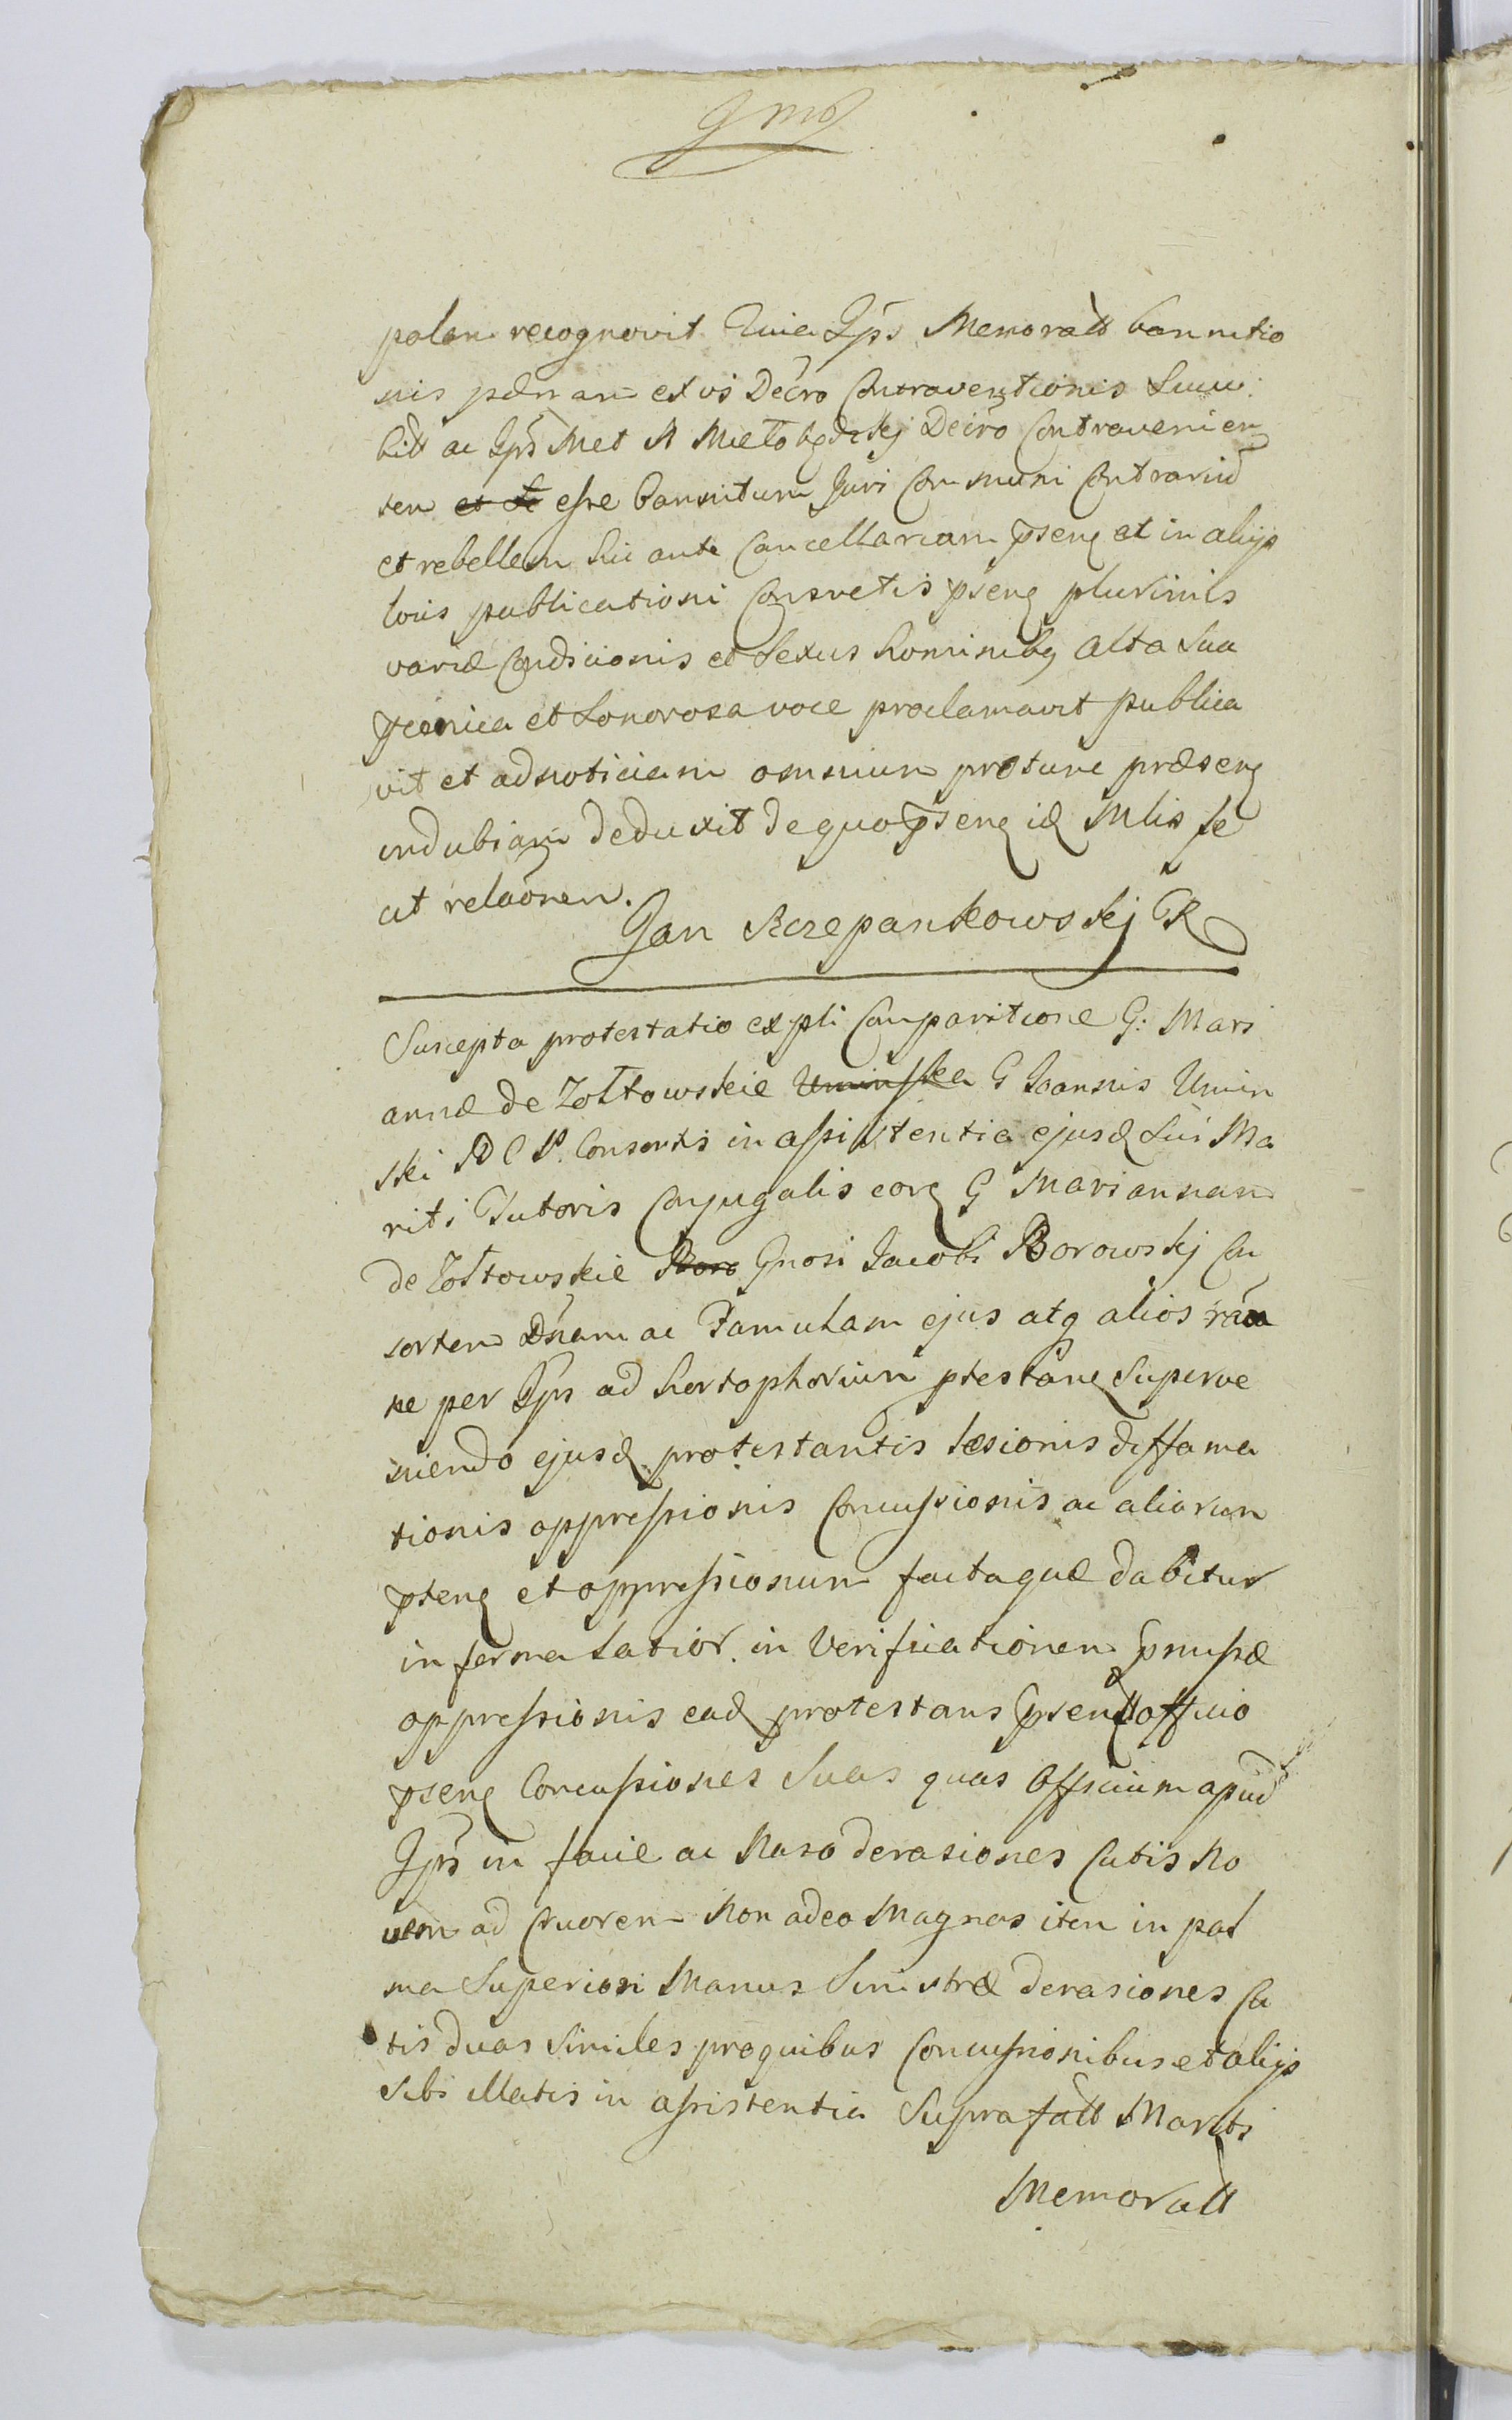 palam recognovit Quia Ips Memoratt bannitio
nis pœnam ex vi Decro Contraventionis Succu
bit ac Ips Met M Decro Contravenien
tem et se esse bannitum Juri Communi Contrariu
et rebellem hic ante Cancellariam psen et in alijs
locis publicationi Consvetis psen plurimis
variæ Condicionis et Sexus hominibq alta sua
pconica et Sonorosa voce proclamavit publica
vit et ad noticiam omnium protunc præsen
indubiam deduxit de quo psen id Mlis fe
cit relaonem.
Jan Szczepankowskj R
Suscepta protestatio ex pti Comparitione G: Mari
annæ de Zołtowskie Uminska G Joannis Umin
ski D C P. Consortis in assistentia ejusd sui Ma
riti Tutoris Conjugalis cor G Mariannam
de Zołtowskie Boro Gnosi Jacobi Borowskj Con
sortem Dnam ac Famulam ejus atq alios raõ
ne per Ips ad hortophorium ptestan superve
niendo ejusd protestantis læsionis diffama
tionis oppressionis Concussionis ac aliorum
pten et oppressionum factaquæ dabitur
in forma latior. in Verificationem pmissæ
oppressionis ead protestans psen officio
psen Concussiones Suas quas Officium apud
Ips in facie ac Naso derasiones Cutis No
vem ad Cruorem Non adeo Magnas item in pal
ma Superiori Manus Sinistræ derasiones Cu
tis duas Similes pro quibus Concussionibus et alijs
sibi illatis in assistentia Suprafatt Mariti
Memoratt